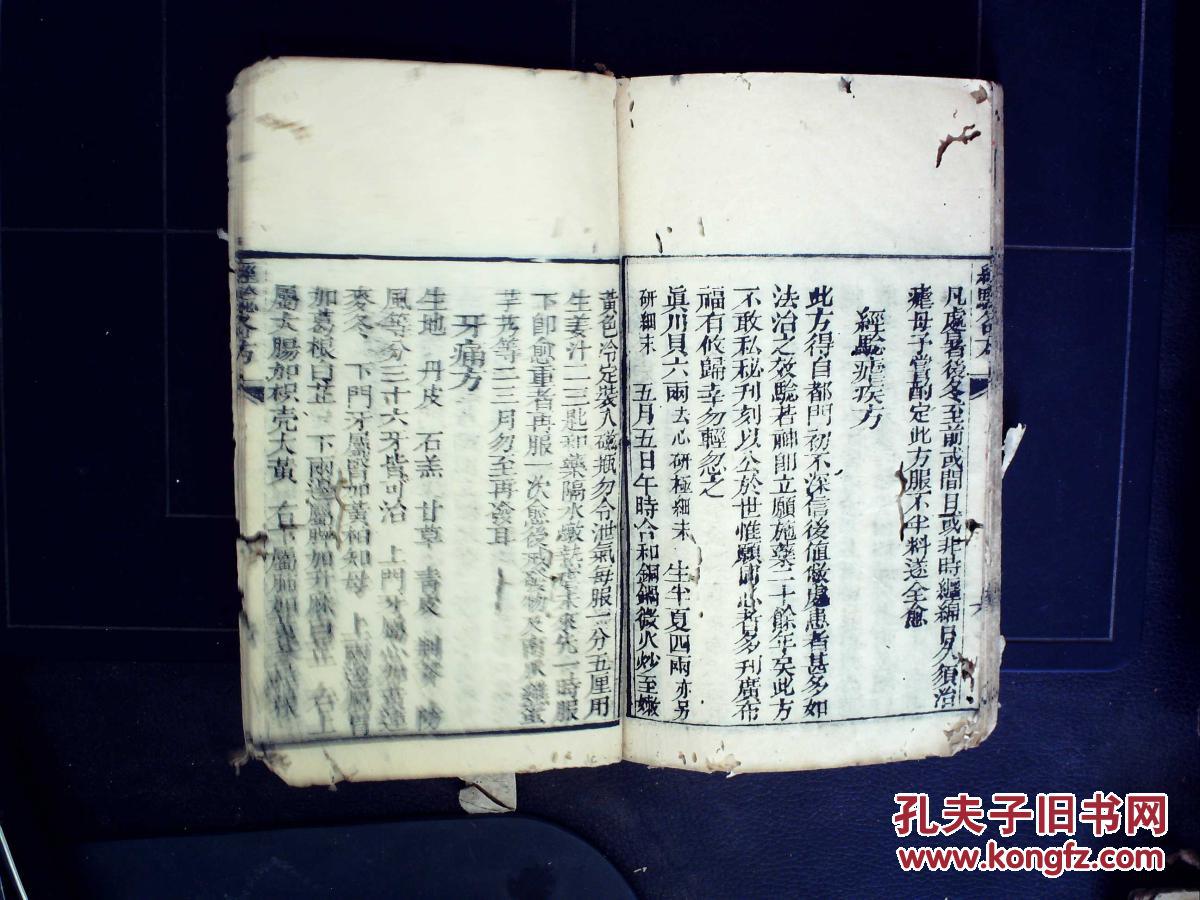 凡處暑後冬至前或間日或非時纏綿日久須治
瘧母予嘗酌定此方服不半料遂全愈
經驗瘧疾方
此方得自都門初不深信後值敝處患者甚多如
法治之效驗若神卽立願施藥二十餘年矣此方
不敢私秘刊刻以公於世惟願同心者多刊廣布
福有攸歸幸勿輕忽之
眞川貝六兩去心研極細末 生半夏四兩亦另
研細末 五月五日午時合和銅鍋微火炒至嫩
黃色冷定裝入磁瓶勿令泄氣每服一分五厘用
生姜汁二三匙和藥隔水燉熱瘧未來先一時服
下卽愈重者再服一次愈後戒發物及南瓜雞蛋
芋艿等二三月勿至再發耳
牙痛方
生地 丹皮 石羔 甘草 青皮 荆芥 防
風等分三十六牙皆可治 上門牙屬心加黃連
麥冬 下門牙屬腎加黃柏知母 上兩邊屬胃
加葛根白芷 下兩邊屬脾加升麻白芷 右上
屬大腸加枳壳大黃 右下屬肺加
經驗各方
孔夫子旧书网
www.kongfz.com